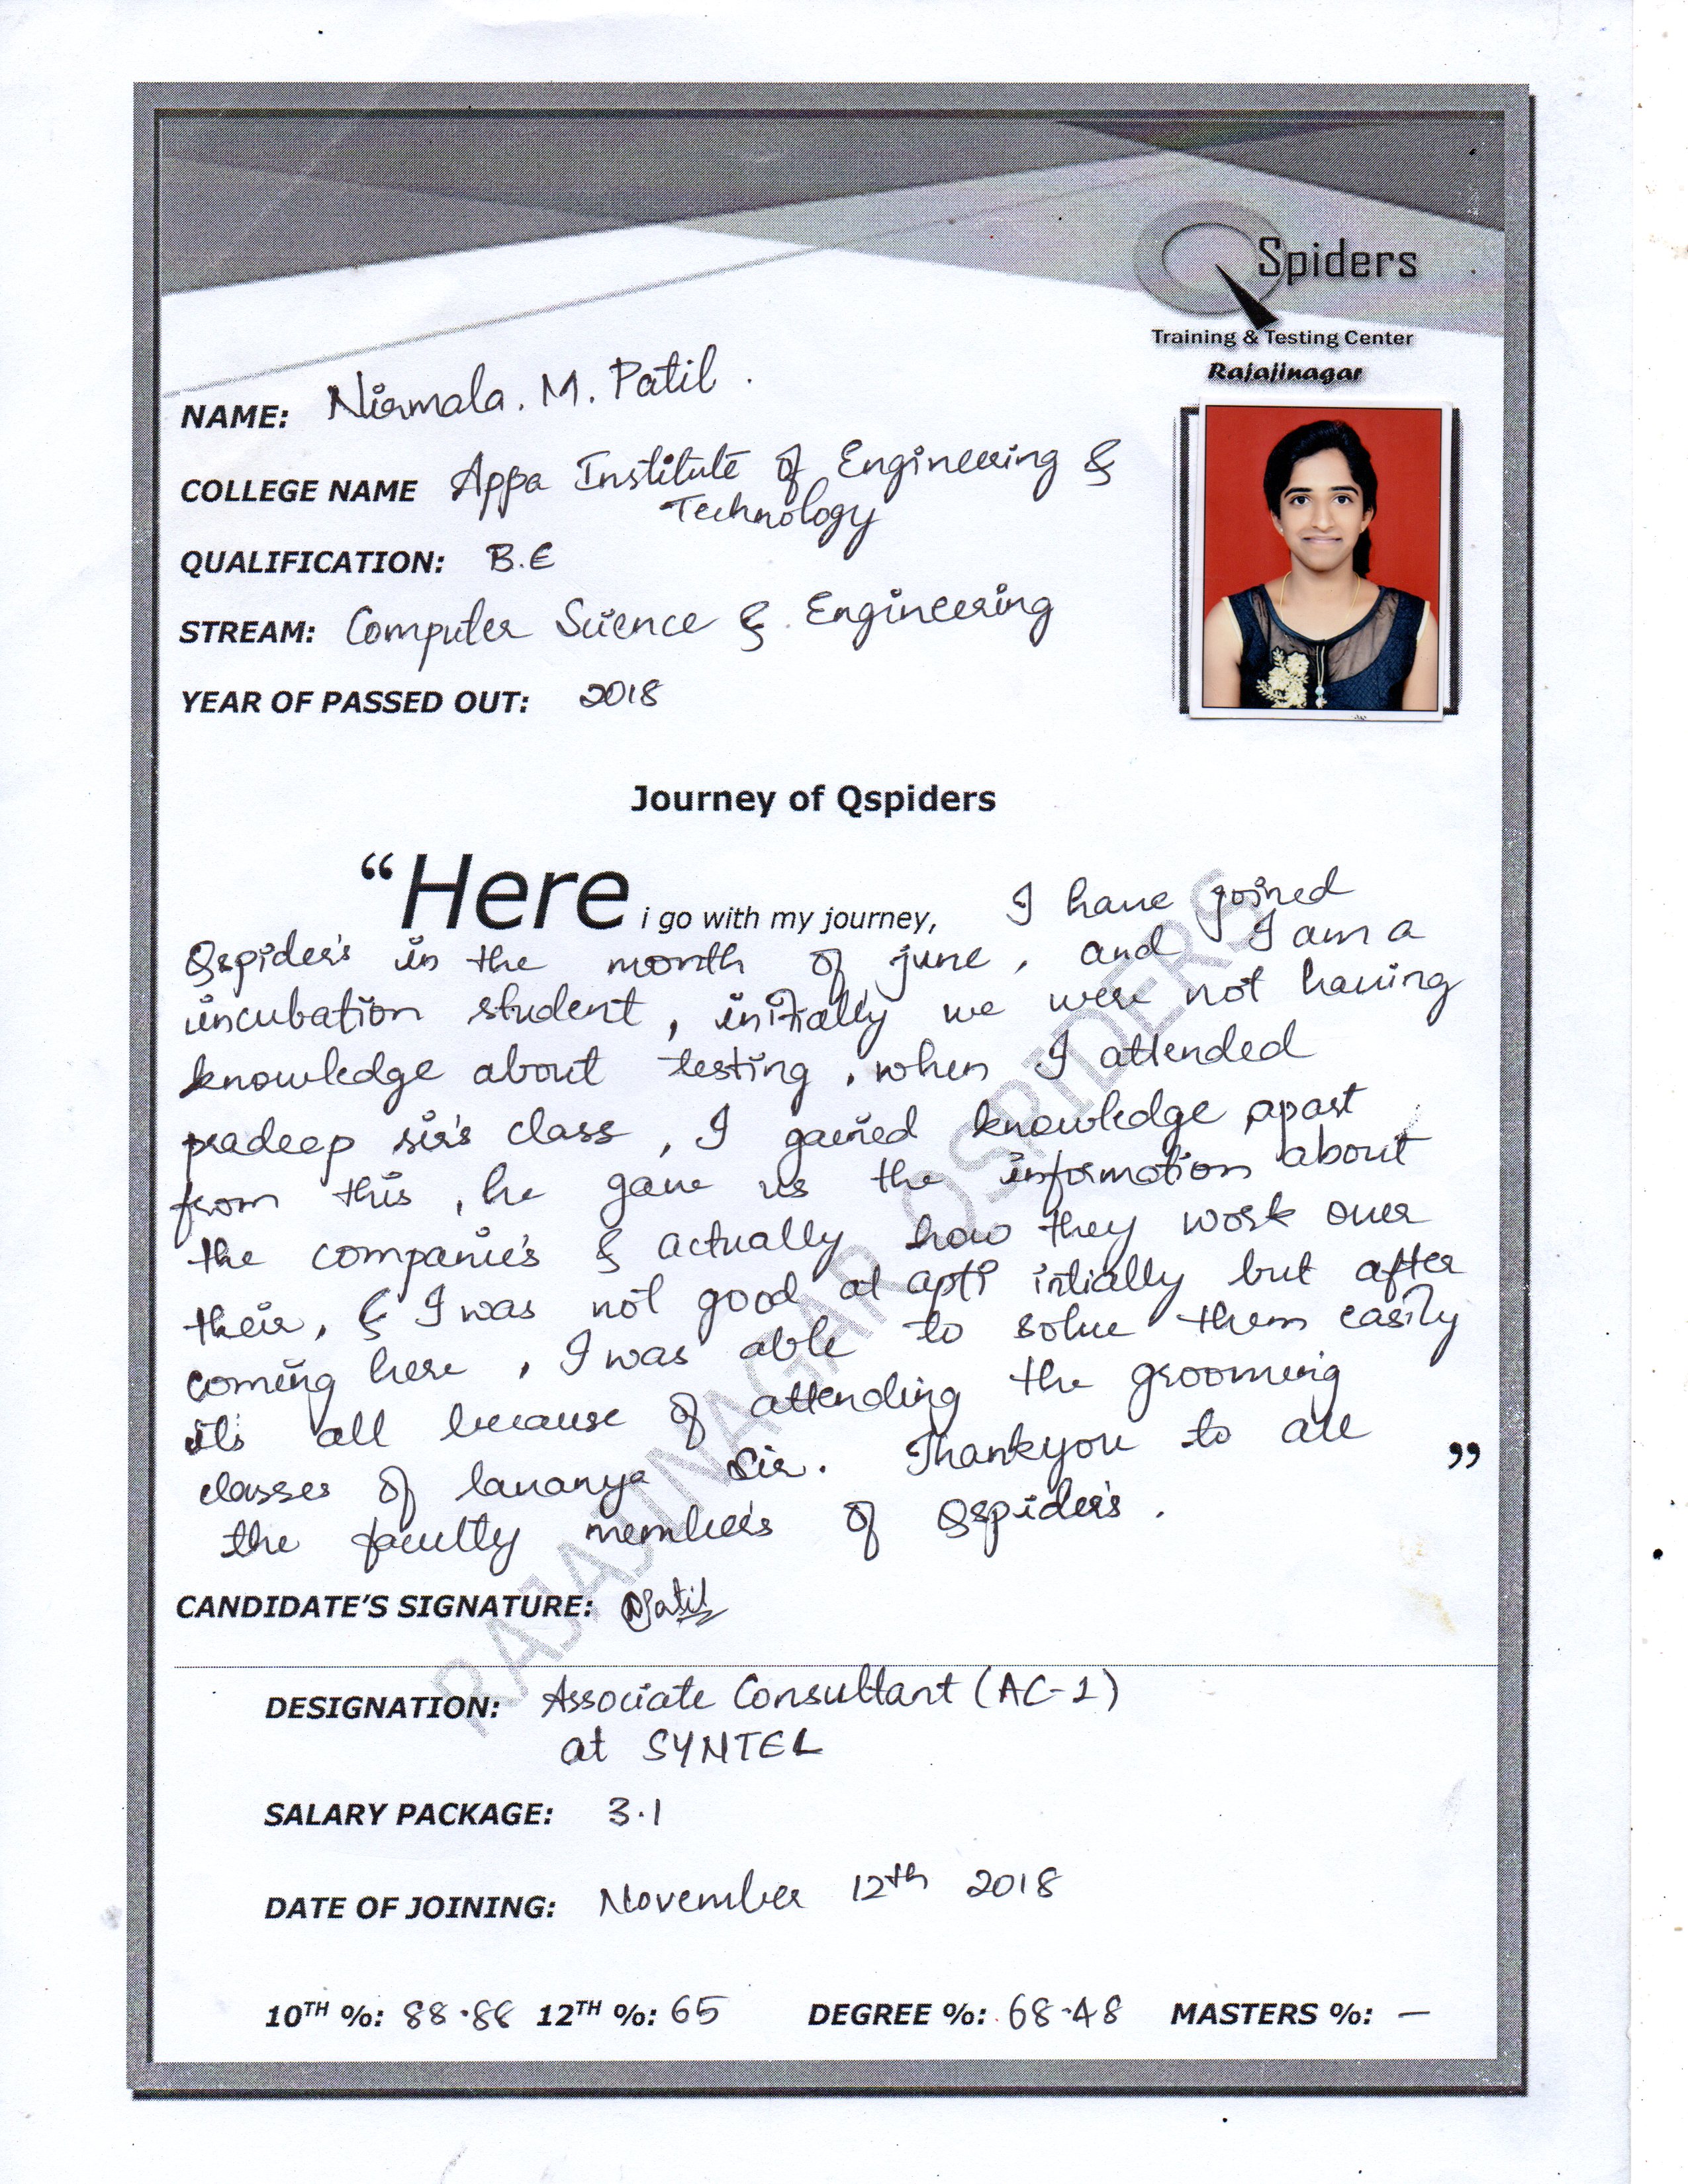 Spiders
Training & Testing Center
Rajajinagar
NAME: Nirmala. M. Patil.
COLLEGE NAME Appa Institute of Engineering &
Technology
QUALIFICATION: B.E
STREAM: Computer Science & Engineering
YEAR OF PASSED OUT: 2018
Journey of Qspiders
“Here i go with my journey, I have joined
Qspider's in the month of june, and I am a
incubation student, initially we were not having
knowledge about testing, when I attended
pradeep sir's class, I gained knowledge apart
from this, he gave us the information about
the companie's & actually how they work over
their, & I was not good at apti intially but after
coming here, I was able to solve them easily
it's all because of attending the grooming
classes of lavanya sir. Thankyou to all ”
the faculty member's of Qspider's.
CANDIDATE’S SIGNATURE: NPatil
DESIGNATION: Associate Consultant (AC-1)
at SYNTEL
SALARY PACKAGE: 3.1
DATE OF JOINING: November 12th 2018
10TH %: 88.88 12TH %: 65 DEGREE %: 68.48 MASTERS %: —
RAJAJINAGAR QSPIDERS